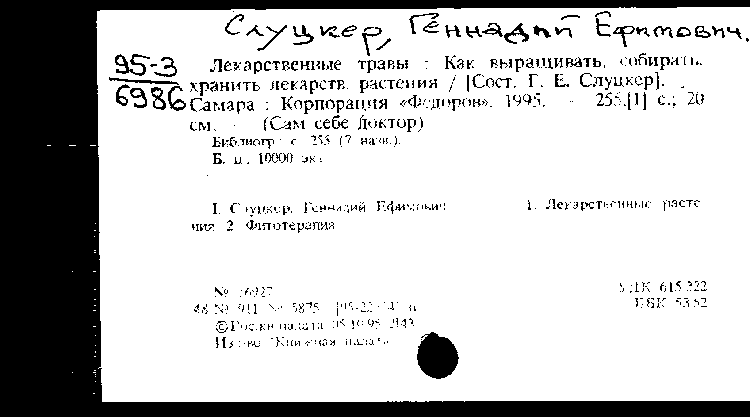 Слуцкер, Геннадий Ефимович.
95-3
6986
Лекарственные травы : Как выращивать, собирать,
хранить лекарств. растения / [Сост. Г. Е. Слуцкер].
Самара : Корпорация «Федоров», 1995. - 255,[1] с.; 20
см. - (Сам себе доктор)
Библиогр.: с. 255 (7 назв.).
Б. ц., 10000 экз.
I. Слуцкер, Геннадий Ефимович 1. Лекарственные расте-
ния 2. Фитотерапия
№ 16927 УДК 615.322
№ 911 № 5875 ББК 53.52
©Рос.кн.палата, 05.10.95
Изд-во "Книжная палата"